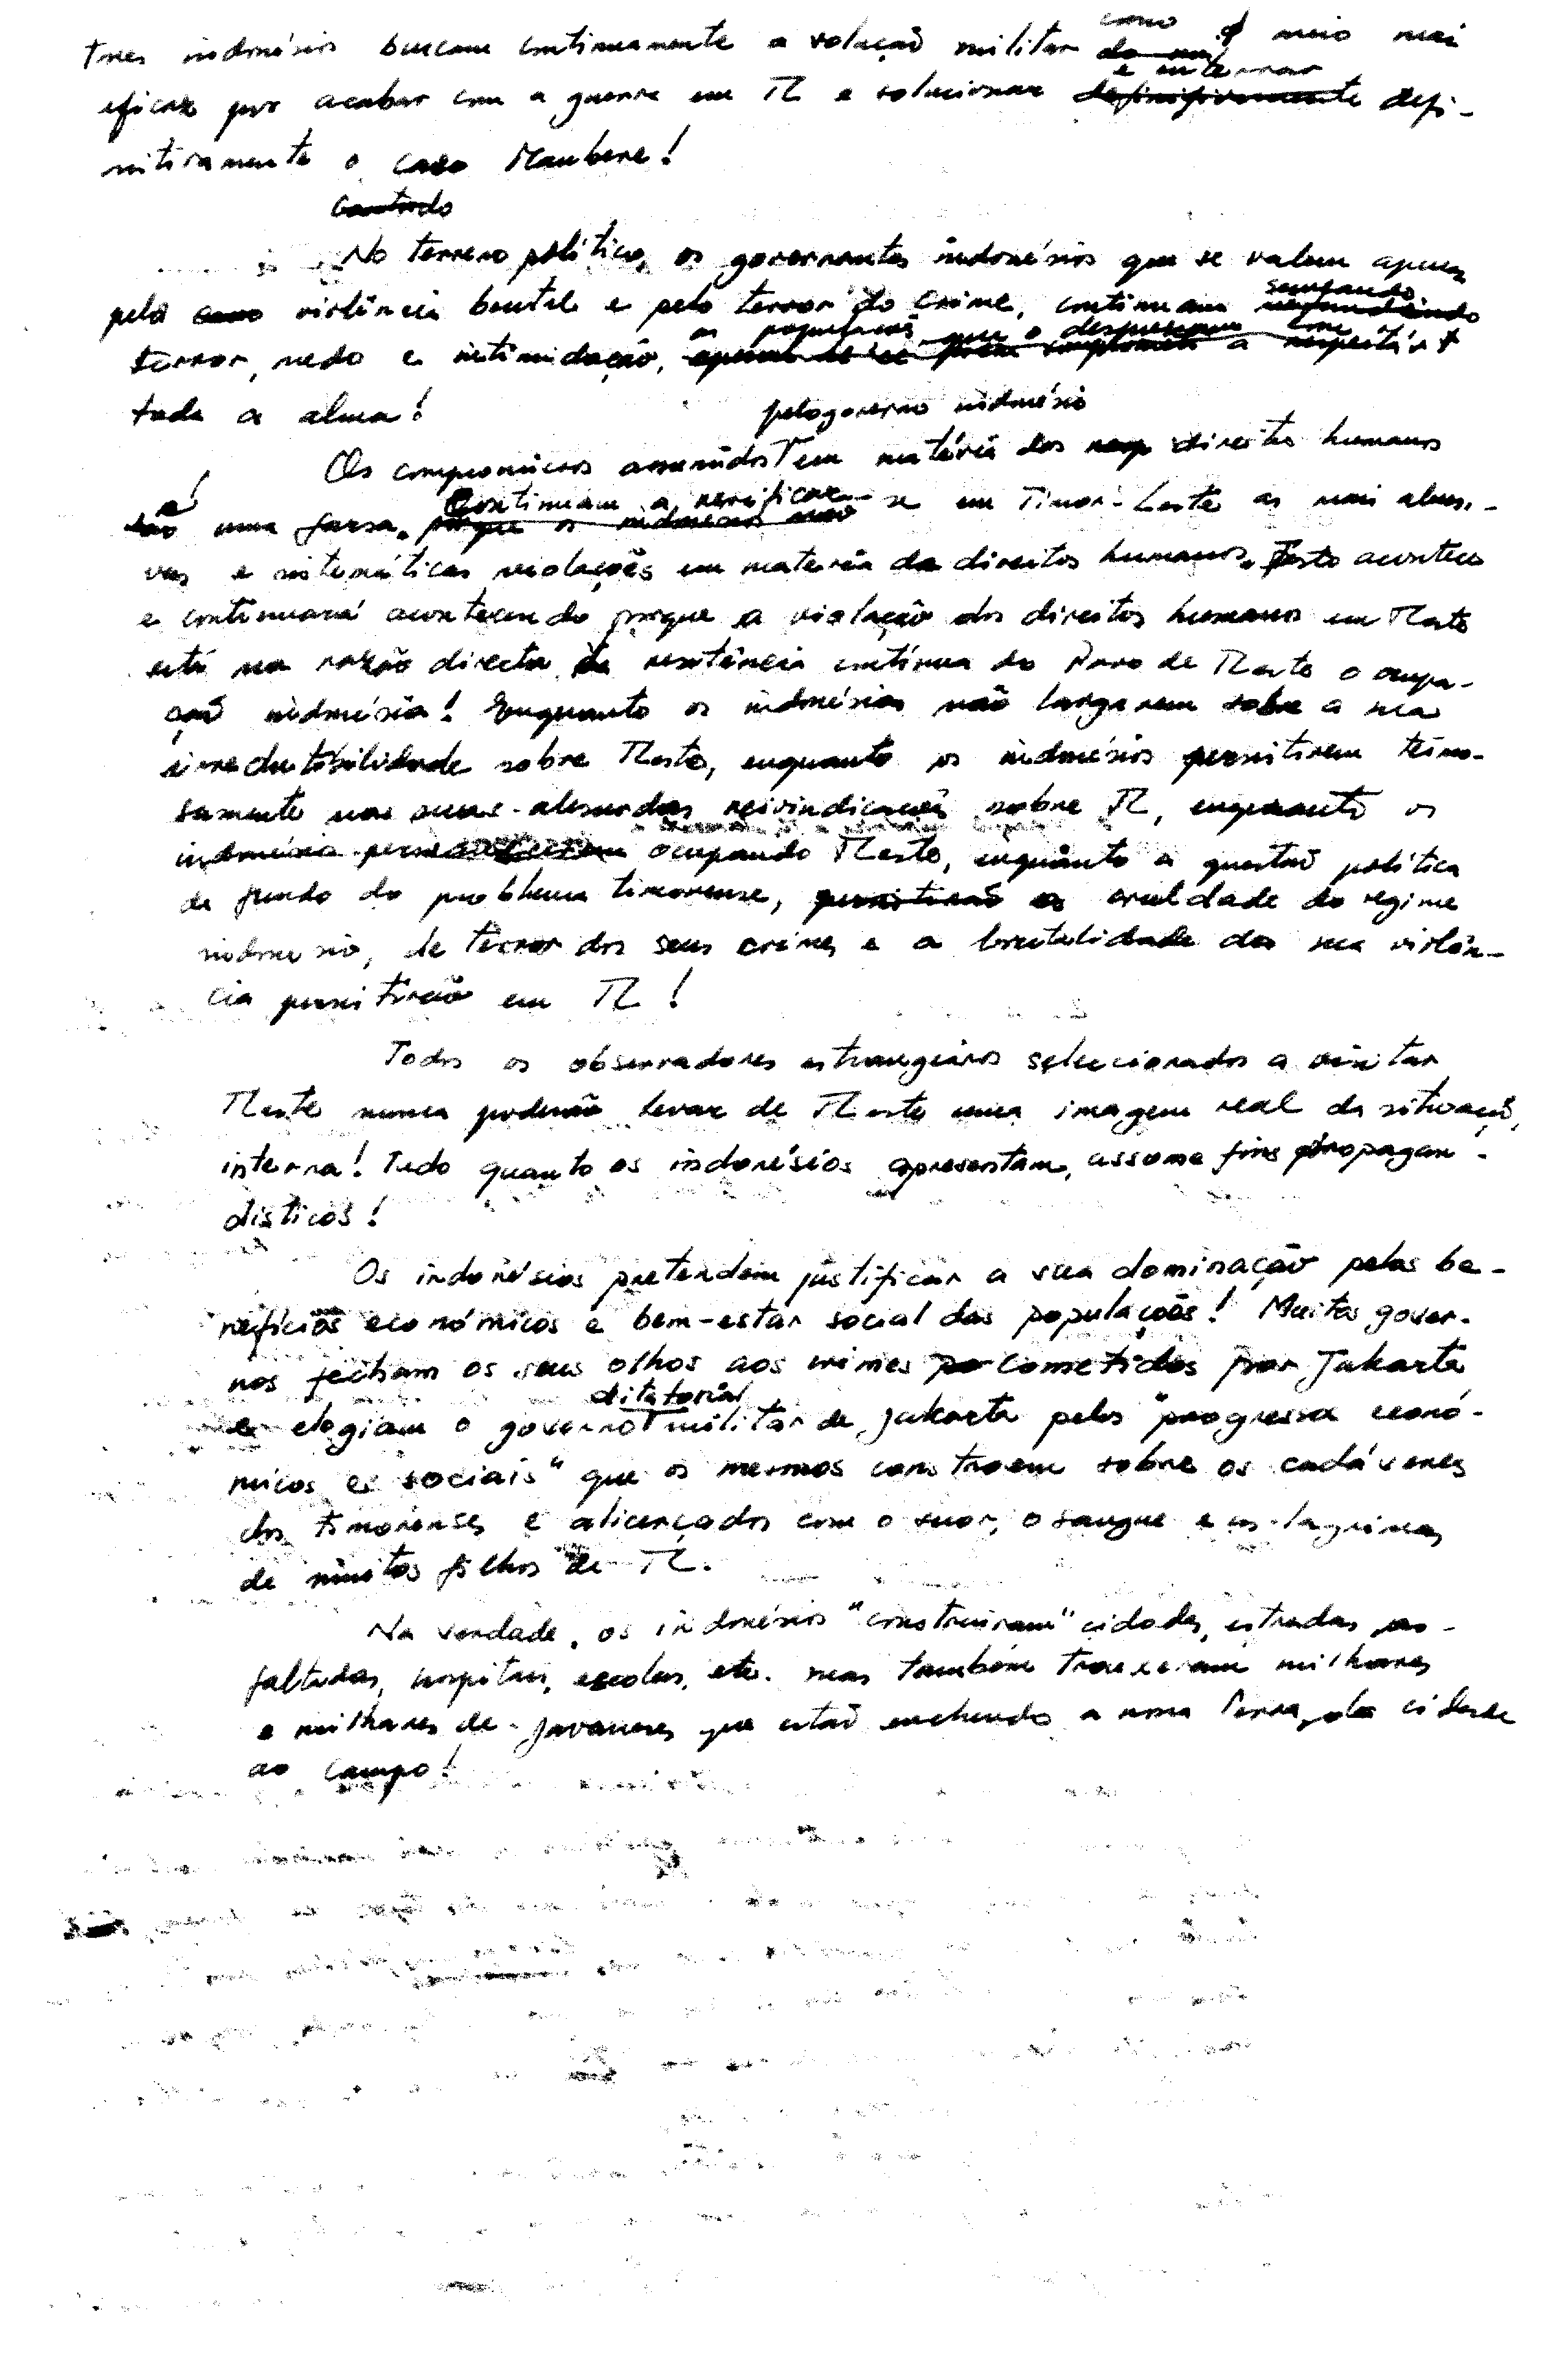 tres indonésios buscam continuamente a solução militar como o meio mais
eficaz par acabar com a guerra em TL e solucionar e encerrar defi-
nitivamente o caso Maubere!
Contudo
No terreno político, os governantes indonésios que se valem apenas
pela violência brutal e pelo terror do crime, continuam semeando
terror, medo e intimidação, as populações que o desprezam com
toda a alma!
Os compromissos assumidos pelo governo indonésio em matéria dos direitos humanos
é uma farsa. Continuam a verificar-se em Timor-Leste as mais abusi-
vas e sistemáticas violações em matéria de direitos humanos. Isto acontece
e continuará acontecendo porque a violação dos direitos humanos em TLeste
está na razão directa da resistência contínua do Povo de TLeste o ocupa-
ção indonésia! Enquanto os indonésios não largarem sobre a sua
irredutibilidade sobre TLeste, enquanto os indonésios persistirem teimo-
samente nas suas absurdas reivindicações sobre TL, enquanto os
indonésios ocupando TLeste, enquanto a questão política
de fundo do problema timorense, crueldade do regime
indonésio, de terror dos seus crimes e a brutalidade da sua violên-
cia persistirão em TL!
Todos os observadores estrangeiros selecionados a visitar
TLeste nunca poderão levar de TLeste uma imagem real da situação
interna! Tudo quanto os indonésios apresentam, assume fins propagan-
dísticos!
Os indonésios pretendem justificar a sua dominação pelos be-
nefícios económicos e bem-estar social das populações! Muitos gover-
nos fecham os seus olhos aos crimes cometidos por Jakarta
e elogiam o governo ditatorial militar de Jakarta pelos "progressos econó-
micos e sociais" que os mesmos constroem sobre os cadáveres
dos timorenses e alicerçados com o suor, o sangue e as lágrimas
de muitos filhos de TL.
Na verdade, os indonésios "construiram" cidades, estradas as-
faltadas, hospitais, escolas, etc. mas também trouxeram milhares
e milhares de javaneses que estão enchendo a nossa Terra, da cidade
ao campo!